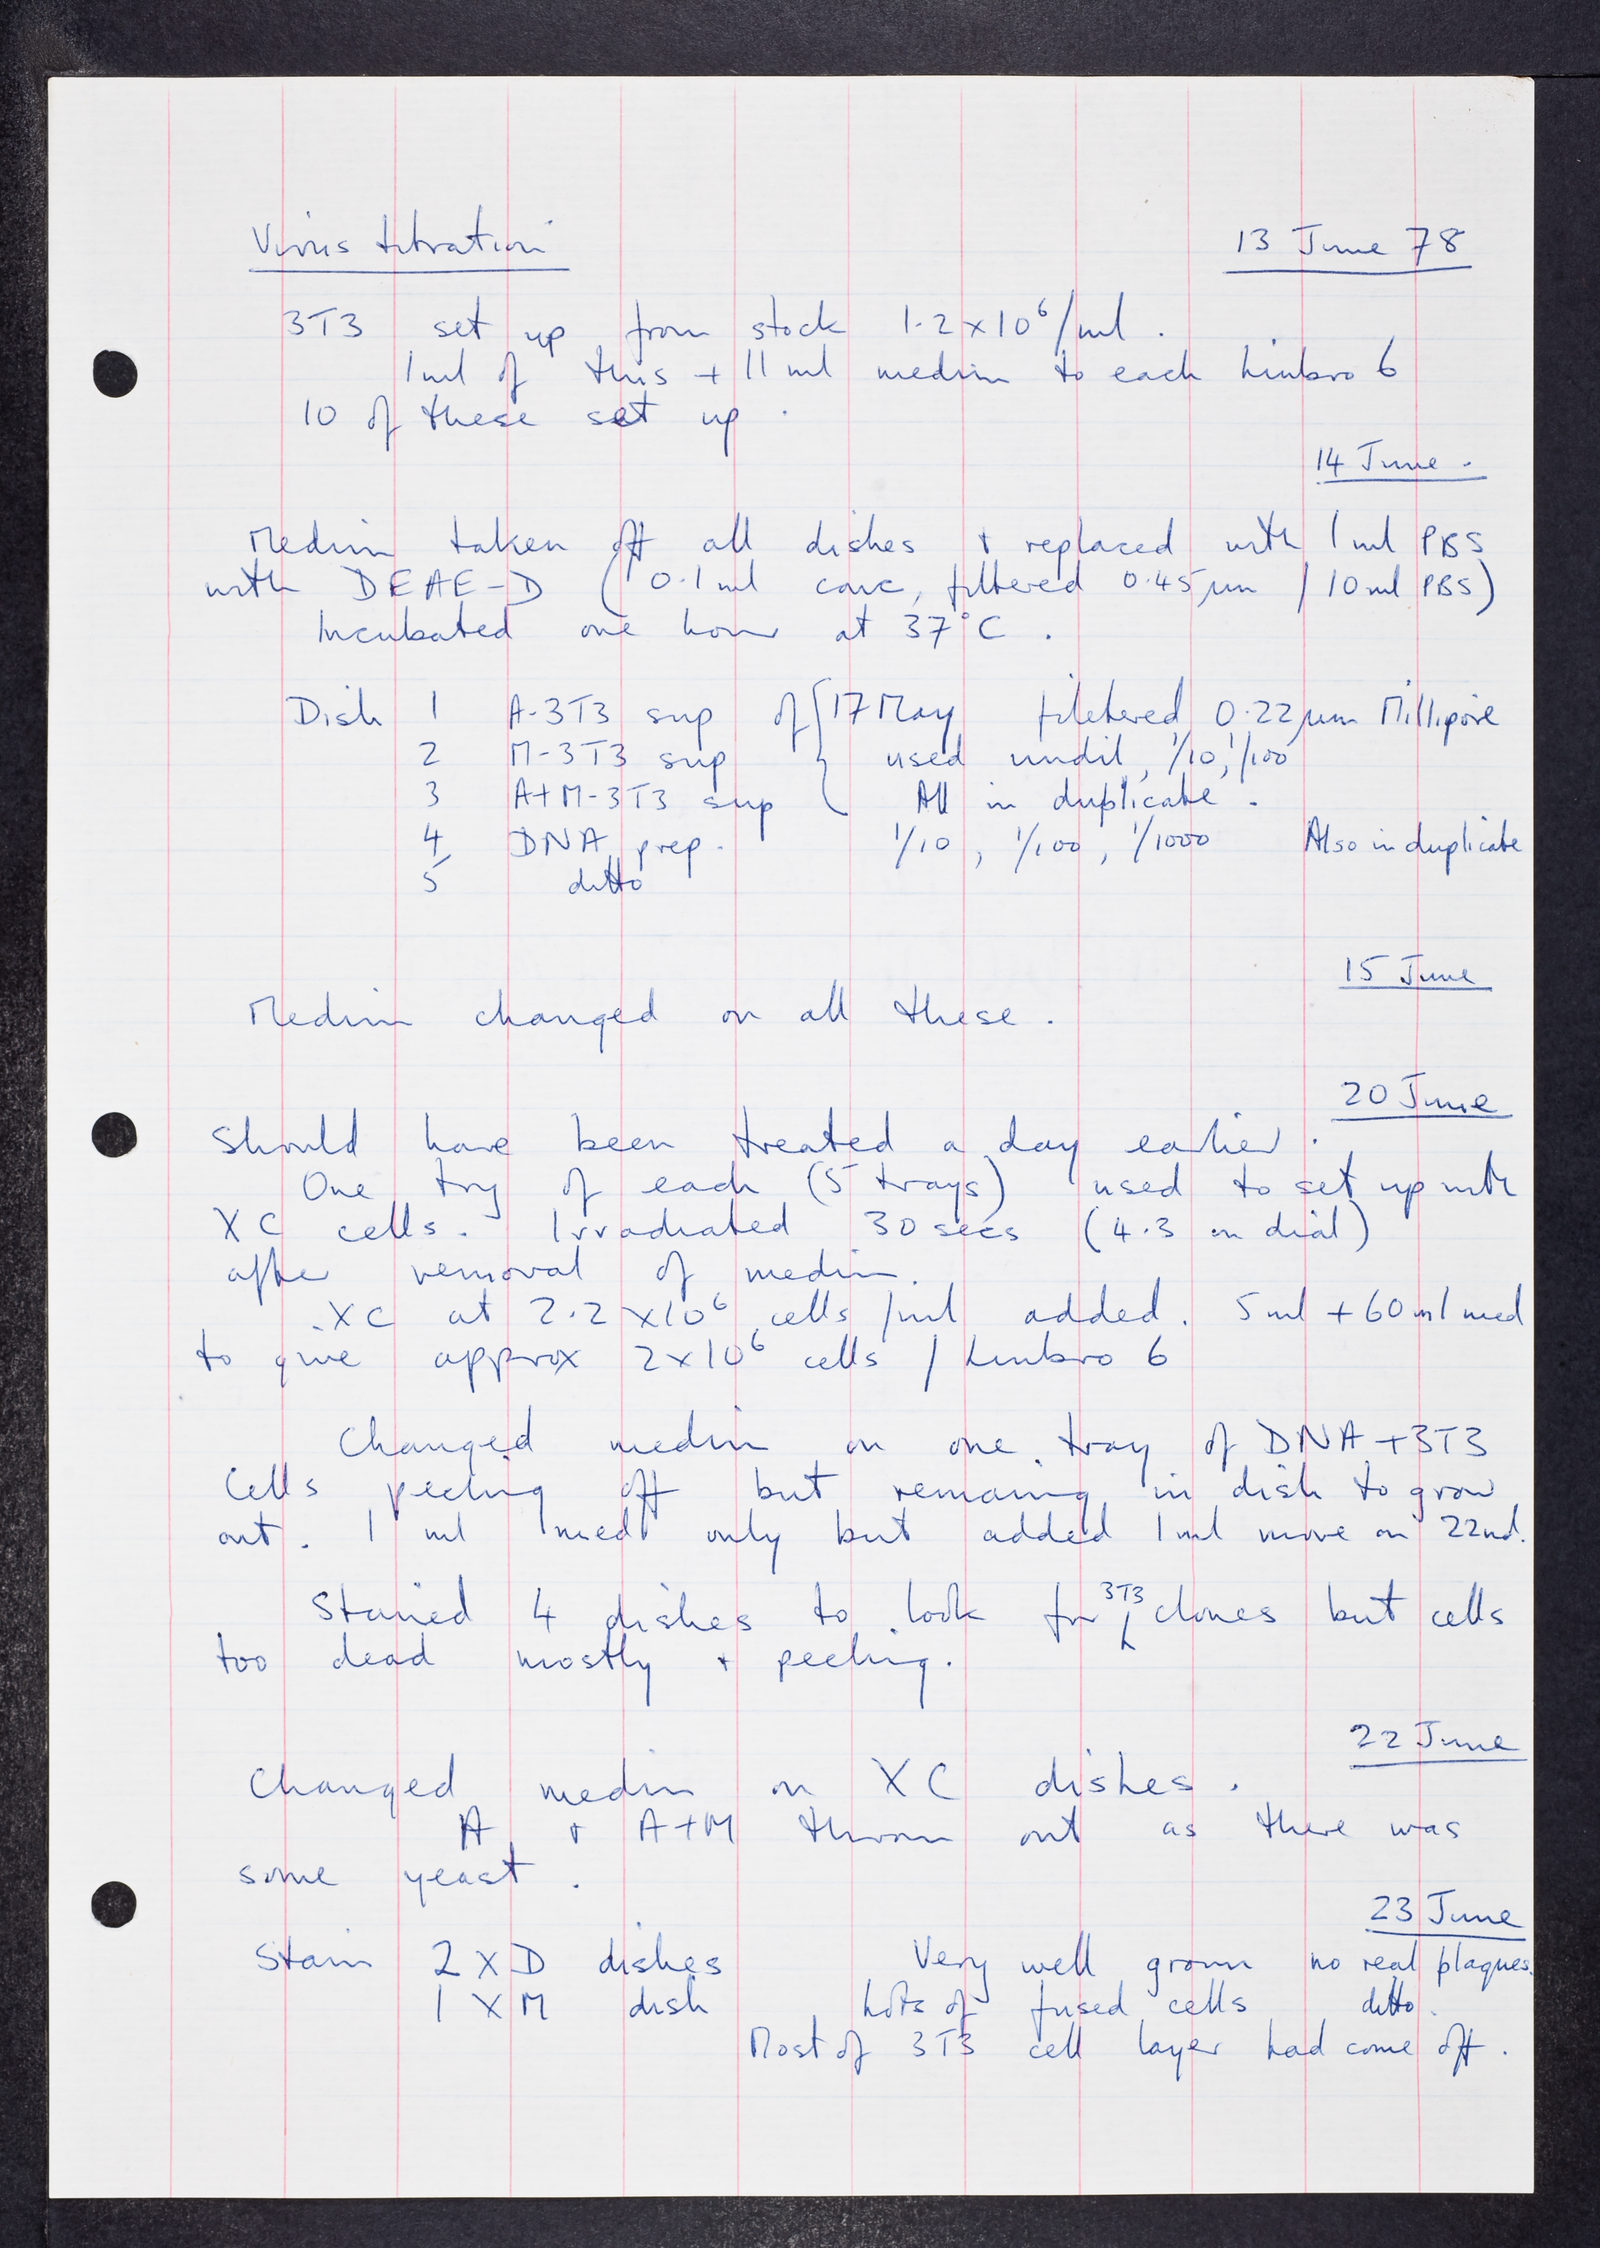 Virus titration 13 June 78
3T3 set up from stock 1.2 x 10⁶/ml.
1ml of this + 11 ml medium to each Linbro 6
10 of these set up.
14 June.
Medium taken off all dishes + replaced with 1 ml PBS
with DEAE-D (0.1 ml conc, filtered 0.45 µm / 10 ml PBS)
Incubated one hour at 37°C.
Dish 1 A-3T3 sup of 17 May filetered 0.22 µm Millipore
2 M-3T3 sup used undil, 1/10, 1/100
3 A+M-3T3 sup All in duplicate.
4 DNA prep. 1/10, 1/100, 1/1000 Also in duplicate
5 ditto
15 June
Medium changed on all these.
20 June
Should have been treated a day earlier.
One try of each (5 trays) used to set up with
XC cells. Irradiated 30 secs (4.3 on dial)
after removal of medium.
XC at 2.2 x 10⁶ cells/ml added. 5 ml + 60 ml med
to give approx 2 x 10⁶ cells / Linbro 6
Changed medium on one tray of DNA + 3T3
Cells peeling off but remaining in dish to grow
out. 1 ml med only but added 1 ml more on 22nd.
Stained 4 dishes to look for 3T3 clones but cells
too dead mostly + peeling.
22 June
Changed medium on XC dishes.
A + A+M thrown out as there was
some yeast.
23 June
Stain 2 x D dishes Very well grown no real plaques.
1 x M dish Lots of fused cells ditto.
Most of 3T3 cell layer had come off.